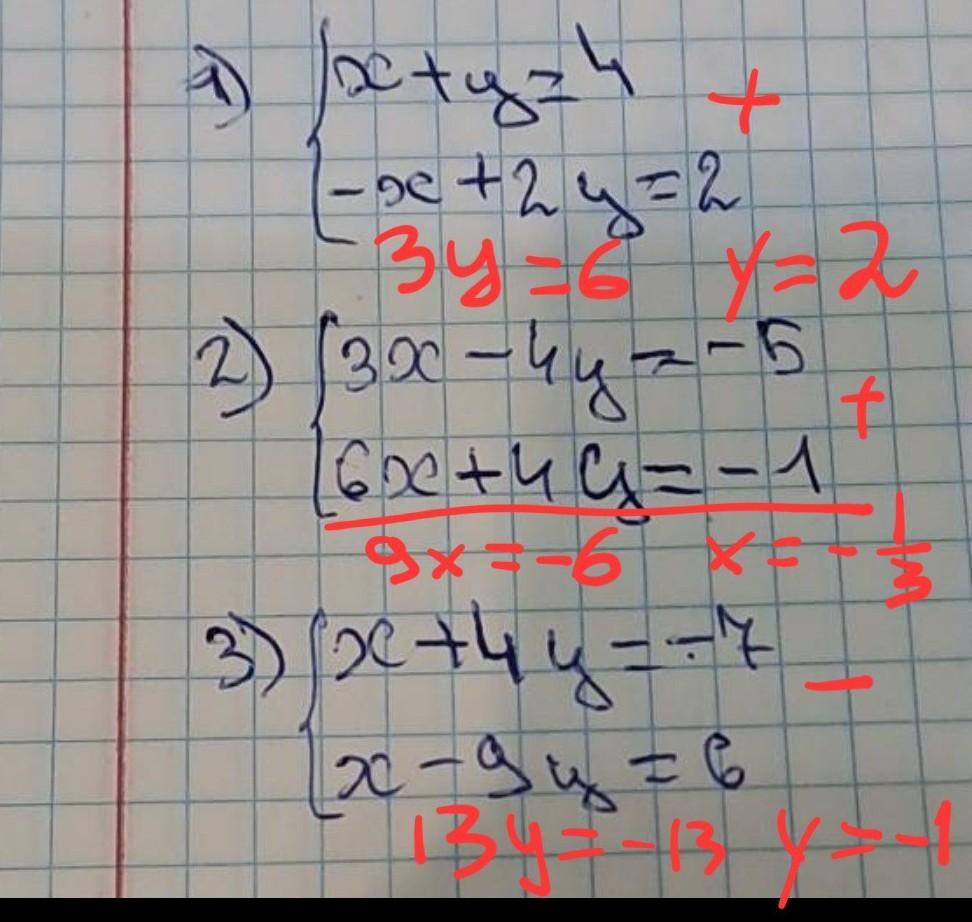 1) x+y=4 +
-x+2y=2
3y=6 y=2
2) 3x-4y=-5
+
6x+4y=-1
9x=-6 x=-1/3
3) x+4y=-7
-
x-9y=6
13y=-13 y=-1